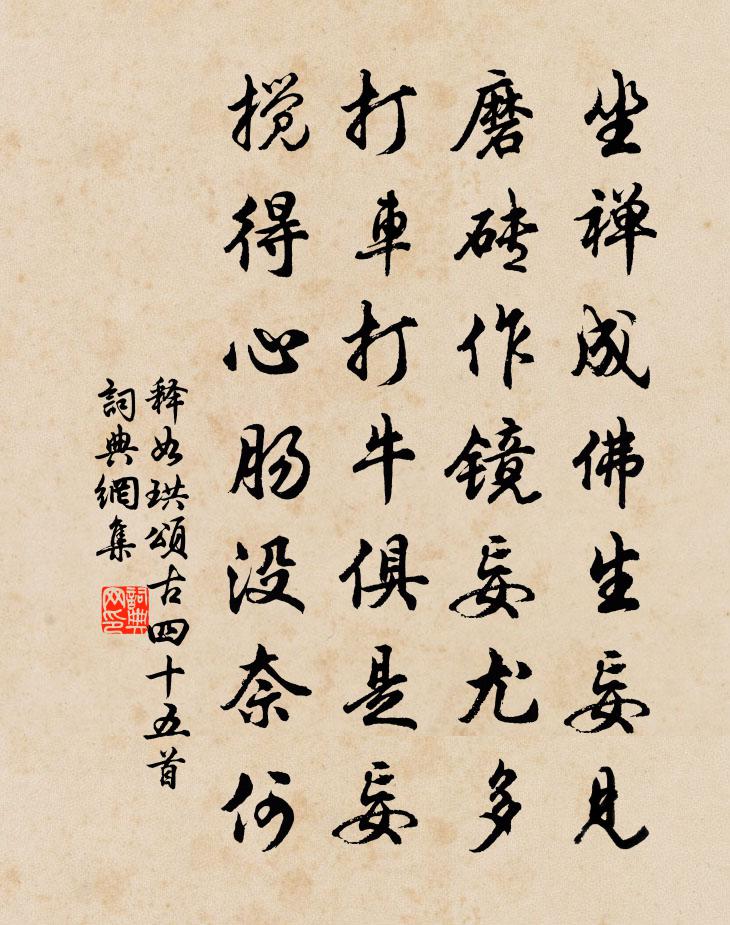 坐禅成佛生妄見
磨砖作镜妄尤多
打車打牛俱是妄
搅得心肠没奈何
释如珙頌古四十五首
詞典網集
詞典网印